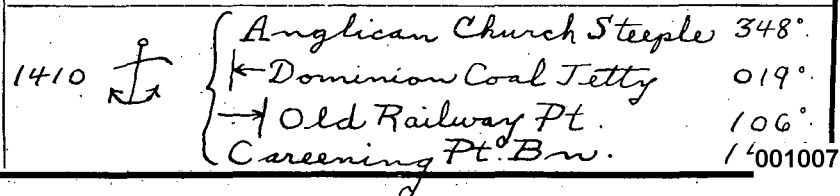 Anglican Church Steeple 348°
1410 ⚓ { |← Dominion Coal Jetty 019°
→| Old Railway Pt. 106°
Careening Pt. Bn.
001007